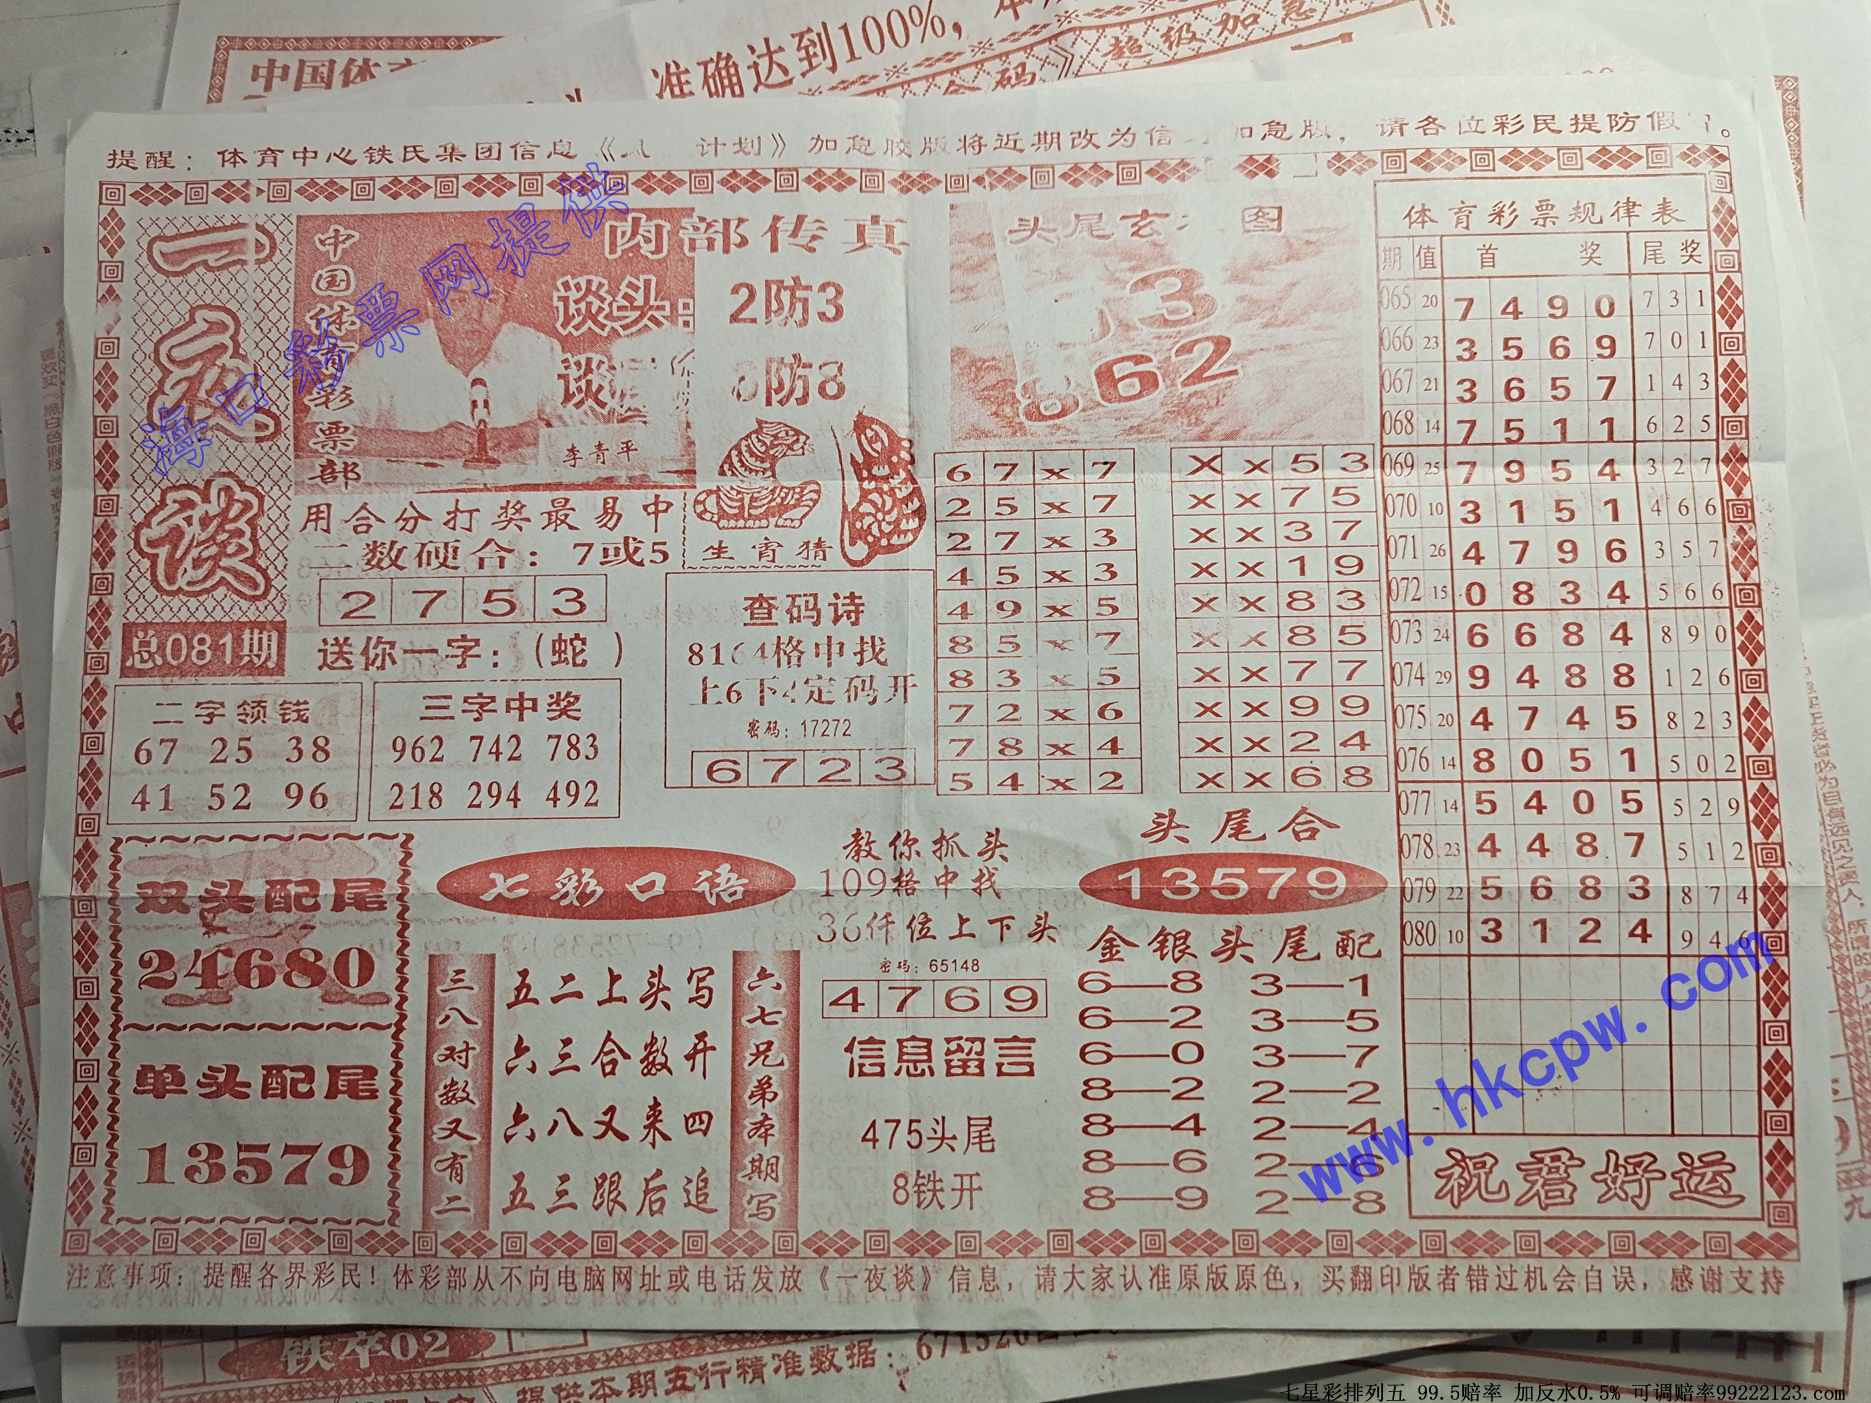 中国体
准确达到100%，
超级加急
提醒：体育中心铁氏集团信息《 计划》加急胶版将近期改为信 加急版，请各位彩民提防假 。
一夜谈
总081期
中国体育彩票部
李青平
内部传真
谈头：2防3
谈 防8
用合分打奖最易中
二数硬合：7或5
2 7 5 3
送你一字：（蛇）
生肖猜
查码诗
8164格中找
上6下4定码开
密码：17272
6 7 2 3
二字领钱
67 25 38
41 52 96
三字中奖
962 742 783
218 294 492
头尾玄 图
3
862
6 7 x 7
2 5 x 7
2 7 x 3
4 5 x 3
4 9 x 5
8 5 x 7
8 3 x 5
7 2 x 6
7 8 x 4
5 4 x 2
X x 5 3
X X 7 5
X X 3 7
X X 1 9
X X 8 3
X X 8 5
X X 7 7
X X 9 9
X X 2 4
X X 6 8
体育彩票规律表
期 值 首 奖 尾 奖
065 20 7 4 9 0 7 3 1
066 23 3 5 6 9 7 0 1
067 21 3 6 5 7 1 4 3
068 14 7 5 1 1 6 2 5
069 25 7 9 5 4 3 2 7
070 10 3 1 5 1 4 6 6
071 26 4 7 9 6 3 5 7
072 15 0 8 3 4 5 6 6
073 24 6 6 8 4 8 9 0
074 29 9 4 8 8 1 2 6
075 20 4 7 4 5 8 2 3
076 14 8 0 5 1 5 0 2
077 14 5 4 0 5 5 2 9
078 23 4 4 8 7 5 1 2
079 22 5 6 8 3 8 7 4
080 10 3 1 2 4 9 4 6
祝君好运
双头配尾
24680
单头配尾
13579
七彩口语
三八对数又有二
五二上头写
六三合数开
六八又来四
五三跟后追
六七兄弟本期写
教你抓头
109格中找
36仟位上下头
密码：65148
4 7 6 9
信息留言
475头尾
8铁开
头尾合
13579
金银头尾配
6—8 3—1
6—2 3—5
6—0 3—7
8—2 2—2
8—4 2—4
8—6 2—6
8—9 2—8
注意事项：提醒各界彩民！体彩部从不向电脑网址或电话发放《一夜谈》信息，请大家认准原版原色，买翻印版者错过机会自误，感谢支持
铁卒02
提供本期五行精准数据：671520
海口彩票网提供
www.hkcpw.com
七星彩排列五 99.5赔率 加反水0.5% 可调赔率99222123.com